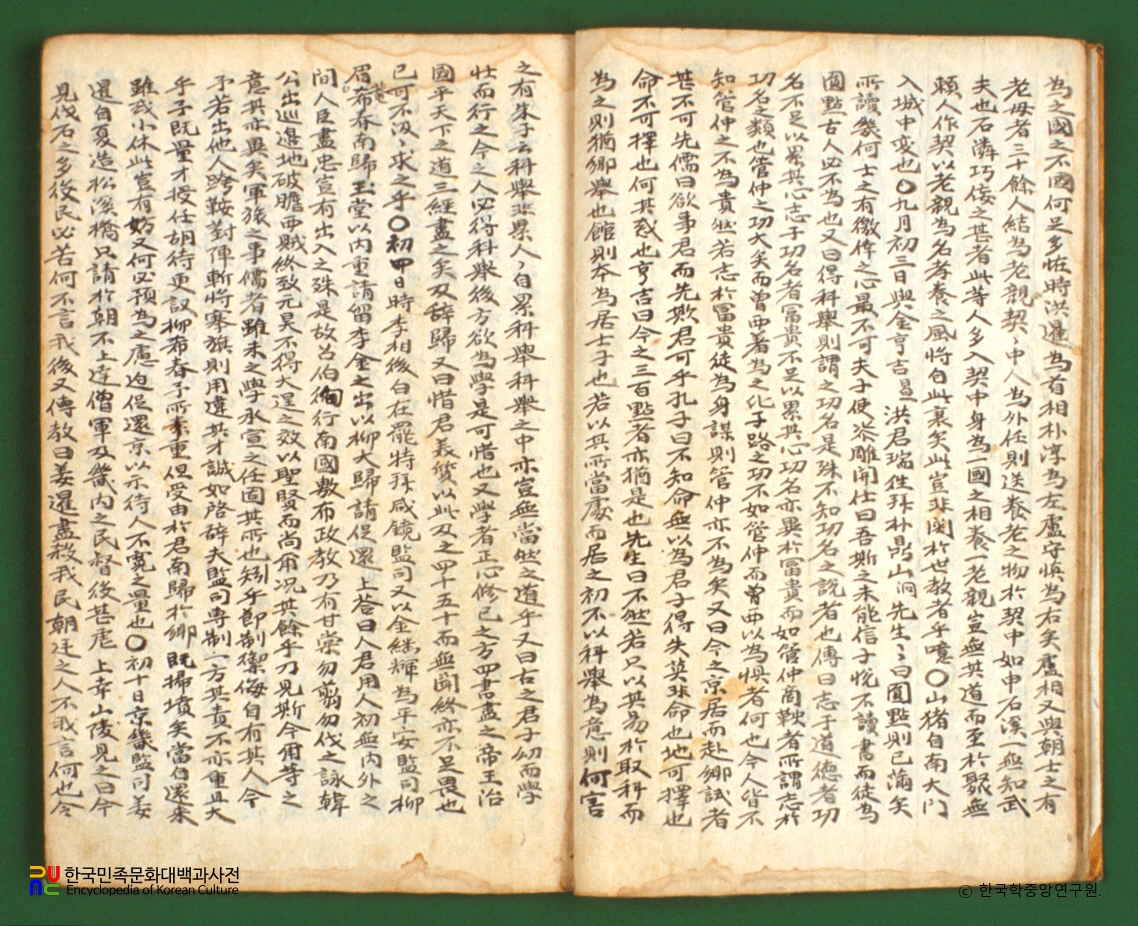 為之國之不國何足多怪時洪暹為首相朴淳為左盧守愼為右矣盧相又與朝士之有
老母者三十餘人結為老親契契中人為外任則送養老之物於契中如中石溪一無知武
夫也石隣巧佞之甚者此等人多入契中身為一國之相養一老親豈無其道而至於聚無
賴人作契以老親為名孝養之風將自此衰矣此豈非関於世教者乎噫○山猪自南大門
入城中変也○九月初三日與金亨吉 洪君瑞往拜朴鼎山洞先生先生曰圓點則已滿矣
所讀幾何士之有徼倖之心最不可夫子使漆雕開仕曰吾斯之未能信子悅不讀書而徒為
圓點古人必不為也又曰得科舉則謂之功名是殊不知功名之說者也傳曰志于道德者功
名不足以累其心志于功名者富貴不足以累其心功名亦異於富貴而如管仲商鞅者所謂志於
功名之類也管仲之功大矣而曾西羞為之化子路之功不如管仲而曾西以為畏者何也今人皆不
知管仲之不為貴然若志於富貴徒為身謀則管仲亦不為矣又曰今之京居而赴鄉試者
甚不可先儒曰欲事君而先欺君可乎孔子曰不知命無以為君子得失莫非命也地可擇也
命不可擇也何其惑也亨吉曰今之三百點者亦猶是也先生曰不然若只以其易於取科而
為之則猶鄉舉也館則本為居士子也若以其所當處而居之初不以科舉為意則何害
之有朱子云科舉非累人人自累科舉科舉之中亦豈無當然之道乎又曰古之君子幼而學
壮而行之今之人必得科舉後方欲為學是可惜也又學者正心修己之方四書盡之帝王治
國平天下之道三經盡之矣及辞歸又曰惜君義質以此及之四十五十而無聞終亦不足畏也
已可不汲汲求之乎○初四日時李相後白在罷特拜咸鏡監司又以金継輝為平安監司柳
眉巖希春南歸玉堂以內重請留李金之出以柳大歸請促還上答曰人君用人初無內外之
間人臣盡忠豈有出入之殊是故召伯旬行南國敷布政教乃有甘棠勿剪勿伐之詠韓
公出巡邉地破膽西賊終致元昊不得大逞之效以聖賢而尚爾况其餘乎乃見斯今用等之
意其亦異矣軍旅之事儒者雖未之學承宣之任固其所也矧乎節制禦侮自有其人今
予若出他人跨鞍對陣斬將搴旗則用違其才誠如啓辞夫監司專制一方其責不亦重且大
乎予既量才授任胡待更議柳希春予所素重但受由於君南歸於鄉既掃墳矣當自還来
雖或小休此豈有妨又何必預為之慮迫促還京以示待人不寬之量也○初十日京畿監司姜
暹自夏造松溪橋只請於朝不上達僧軍及畿內之民督後甚虐上幸山陵見之曰今
見伐石之多後民必苦何不言我後又傳教曰姜暹盡殺我民朝廷之人不我言何也今
한국민족문화대백과사전
Encyclopedia of Korean Culture
© 한국학중앙연구원.